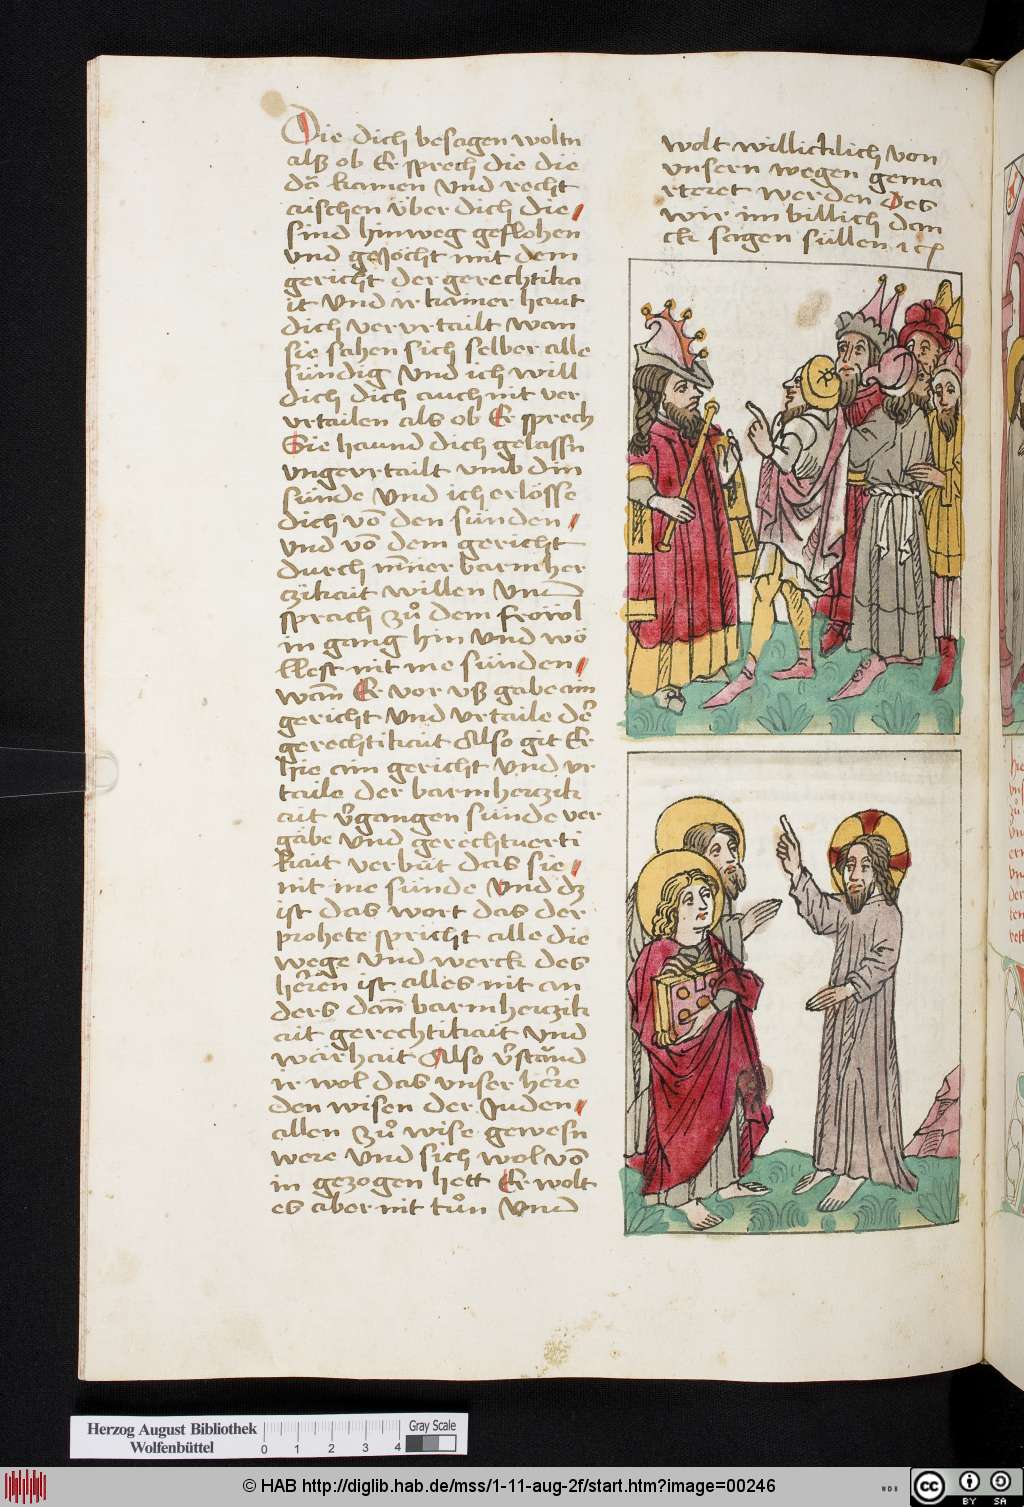 Die dich besagen woltn
alß ob Er sprech die die
dā kamen vnd recht
aischen über dich die
sind hinweg geflohen
vnd gesöcht mit dem
gericht der gerechtika
it vnd ir kainer haut
dich vervrtailt wan
sie sahen sich selber alle
sündig vnd ich will
dich dich auch nit ver
vrtailen als ob Er sprech
Sie haund dich gelassn
vngevrtailt vmb din
sünde vnd ich erlösse
dich vō den sünden
vnd vō dem gericht
durch miner barmher
czikait willen vnd
sprach zuͦ dem fröwl
in gang hin vnd wö
llest nit me sünden
wān Er vor vß gabe ain
gericht vnd vrtaile der
gerechtikait Also git Er
hie ain gericht vnd vr
taile der barmherczik
ait v̄gangen sünde ver
gäbe vnd gerechtuerti
kait verbüt das sie
nit me sünde vnd dz
ist das wort das der
prohete spricht alle die
wege vnd werck des
herren ist alles nit an
ders dañ barmherczik
ait gerechtikait vnd
warhait Also v̄stānd
ir wol das vnser herre
den wisen der Juden
allen zuͦ wise gewesn
were vnd sich wol vō
in gezogen hett Er wolt
es aber nit tuͦn vnd
wolt willicklich von
vnsern wegen gema
rteret werden Des
wir im billich dan
ck sagen süllen
Herzog August Bibliothek
Wolfenbüttel
0 1 2 3 4
Gray Scale
© HAB http://diglib.hab.de/mss/1-11-aug-2f/start.htm?image=00246
WDB
cc BY SA